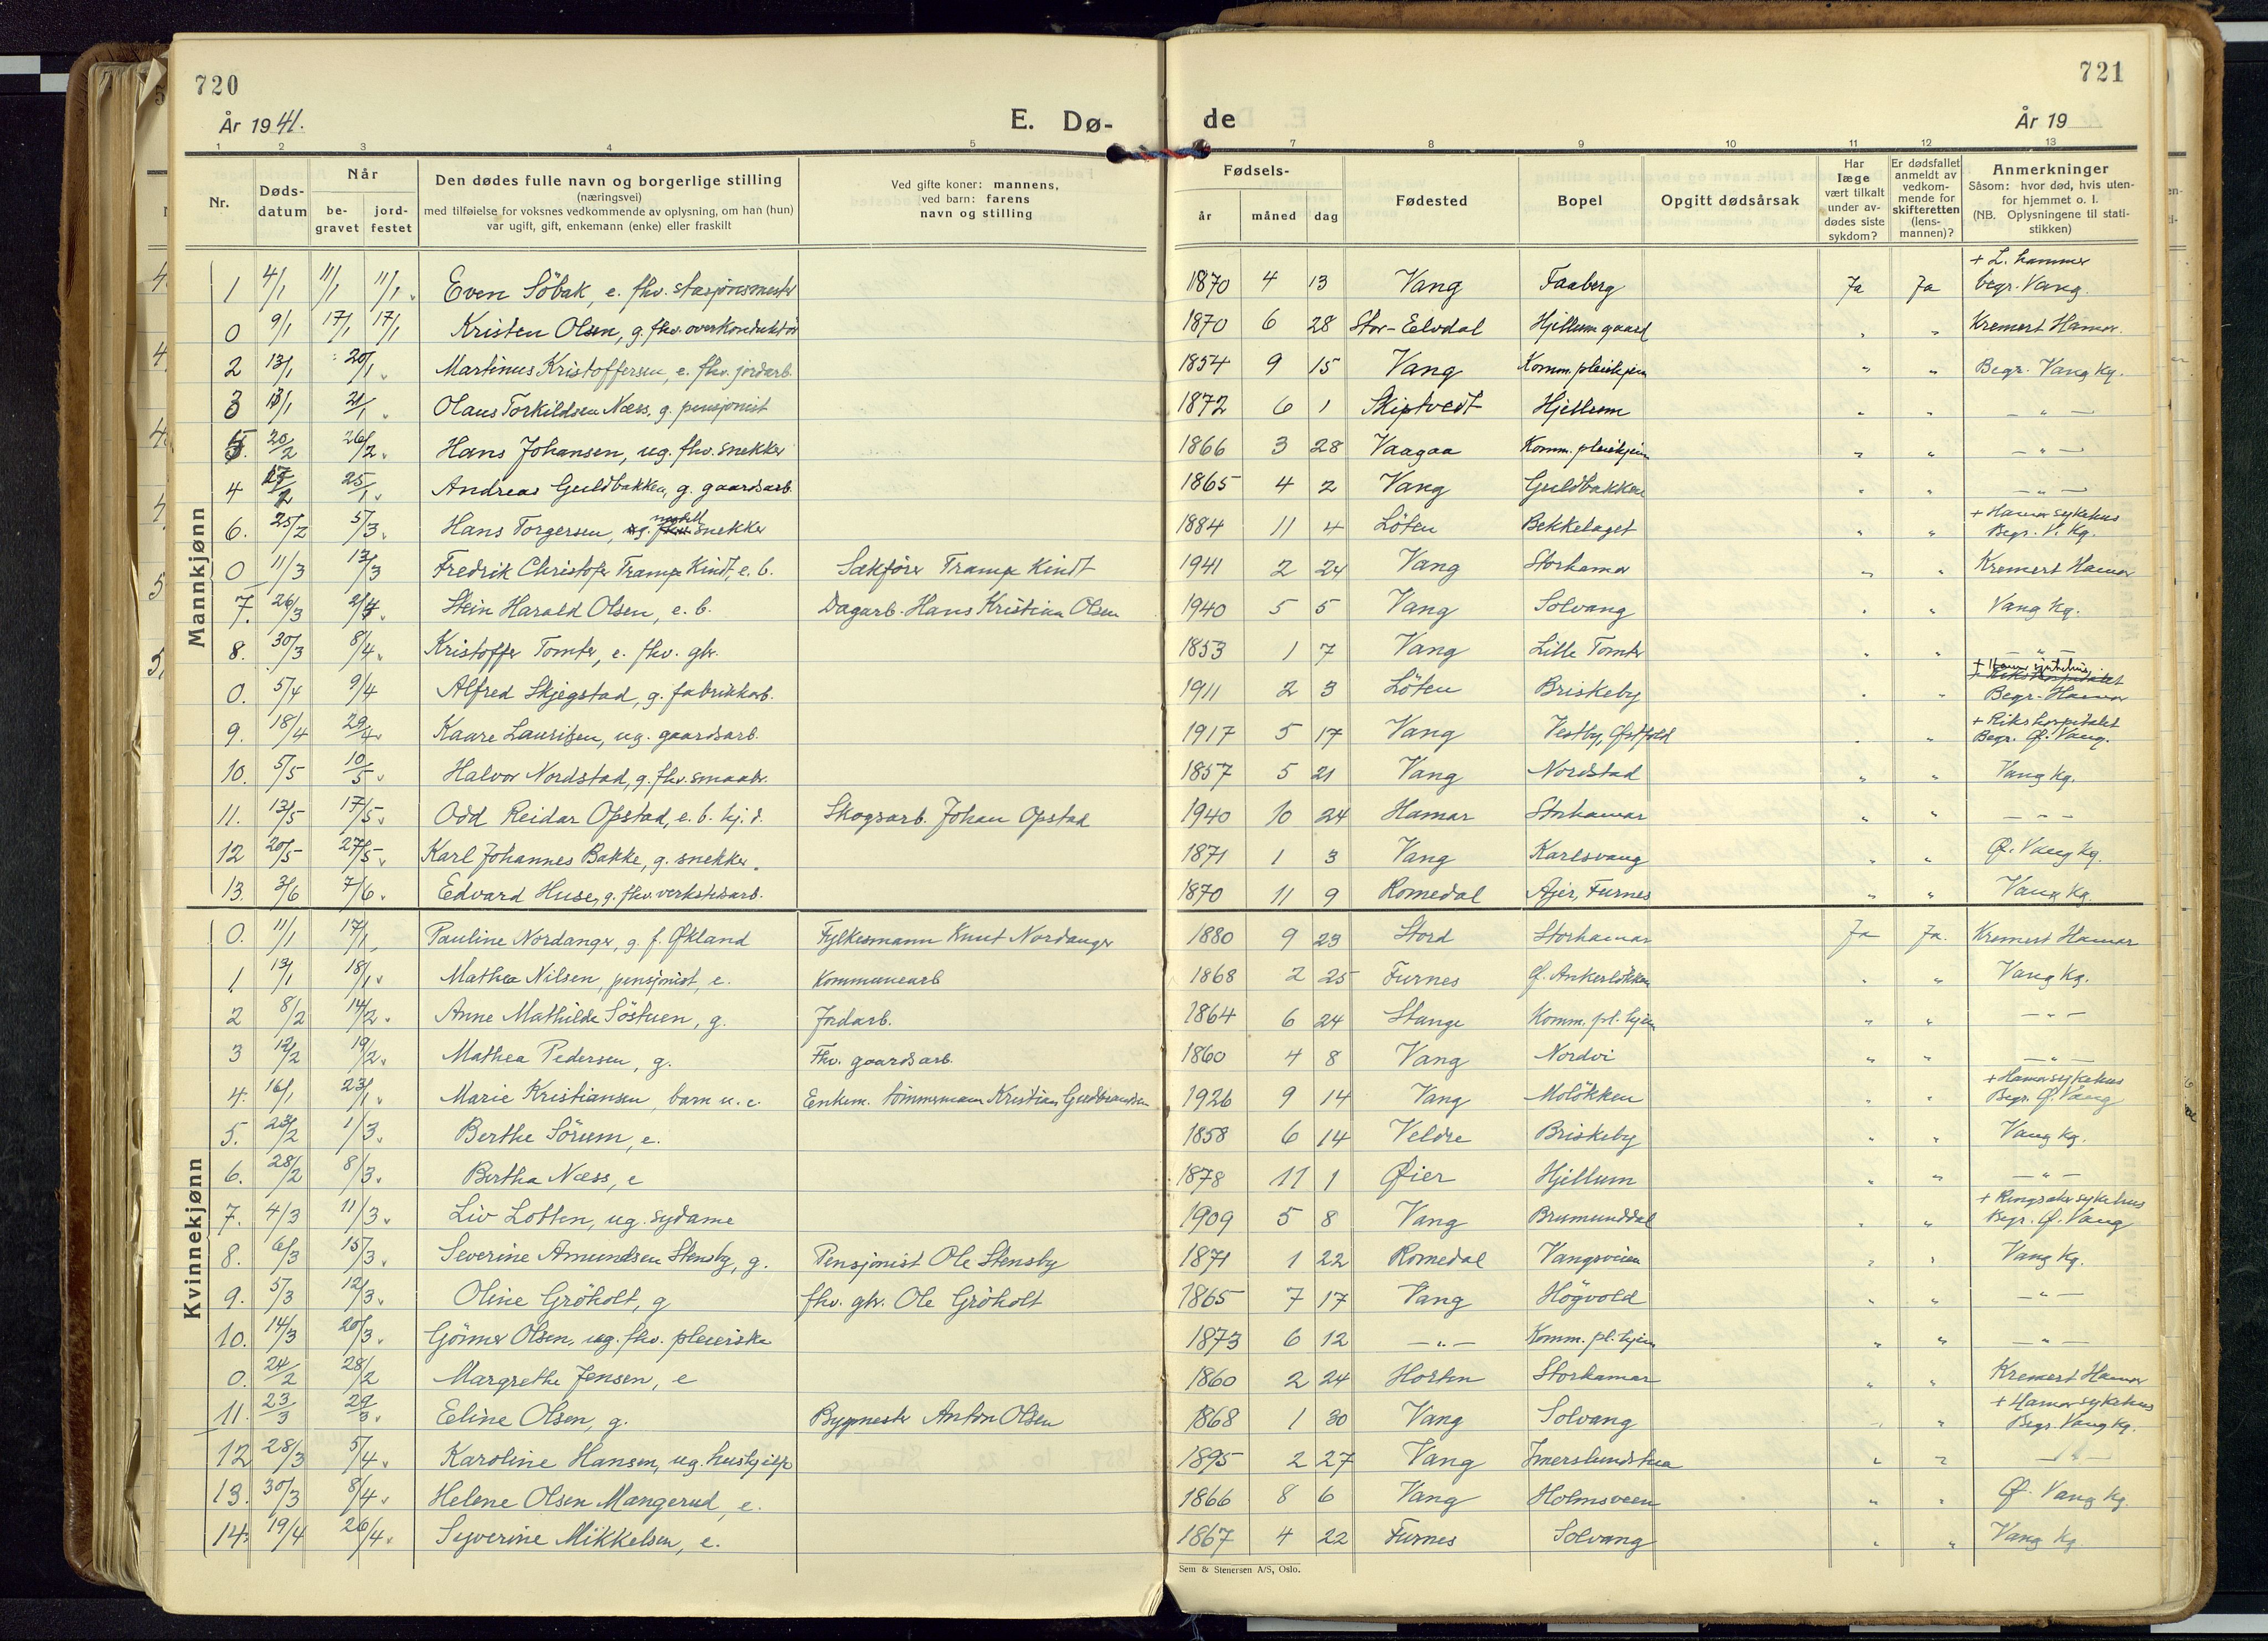 720
År 1941.
E. Dø-
1 2 3 4 5
Nr.
Døds-
datum
Når
be-
gravet
jord-
festet
Den dødes fulle navn og borgerlige stilling
(næringsvei)
med tilføielse for voksnes vedkommende av oplysning, om han (hun)
var ugift, gift, enkemann (enke) eller fraskilt
Ved gifte koner: mannens,
ved barn: farens
navn og stilling
721
de
År 19
7 8 9 10 11 12 13
Fødsels-
år måned dag
Fødested
Bopel
Opgitt dødsårsak
Har
læge
vært tilkalt
under av-
dødes siste
sykdom?
Er dødsfallet
anmeldt av
vedkom-
mende for
skifteretten
(lens-
mannen)?
Anmerkninger
Såsom: hvor død, hvis uten-
for hjemmet o. l.
(NB. Oplysningene til stati-
stikken)
Mannkjønn
1 4/1 11/1 11/1 Even Söbak, e. fhv. stasjonsmester 1870 4 13 Vang Faaberg Ja Ja + L. hammer begr. Vang.
0 9/1 17/1 17/1 Kristen Olsen, g. fhv. overkonduktör 1870 6 28 Stor-Eelvdal Hjellum gaard " " Kremert Hamar.
2 13/1 20/1 Martinus Kristoffersen, e. fhv. jordarb. 1854 9 15 Vang Komm. pleiehjem " " Begr. Vang kg.
3 13/1 21/1 Olaus Torkildsen Næss, g. pensjonist 1872 6 1 Skiptvedt Hjellum " " — " —
5. 20/2 26/2 Hans Johansen, ug. fhv. snekker 1866 3 28 Vaagaa Komm. pleiehjem " " — " —
4 25/1 Andreas Guldbakken, g. gaardsarb. 1865 4 2 Vang Guldbakken " " — " —
6. 25/2 5/3 Hans Torgersen, snekker 1884 11 4 Löten Bekkelaget " " + Hamar sykehus Begr. V. Kg.
0 11/3 13/3 Fredrik Christofer Tramp Kindt, e. b. Sakförer Tramp Kindt 1941 2 24 Vang Storhamar " " Kremert Hamar
7. 26/3 2/4 Stein Harald Olsen, e. b. Dagarb. Hans Kristian Olsen 1940 5 5 Vang Solvang " " Vang kg.
8. 30/3 8/4 Kristoffer Tomter, e. fhv. gbr. 1853 1 7 Vang Lille Tomter " " — " —
0. 5/4 9/4 Alfred Skjegstad, g. fabrikkarb. 1911 2 3 Löten Briskeby " " + Hamar sykehus, + Rikshospitalet Begr. Hamar
9. 18/4 29/4 Kaare Lauritzen, ug. gaardsarb. 1917 5 17 Vang Vestby, Østfold " " + Rikshospitalet Begr. Ø. Vang.
10. 5/5 10/5 Halvor Nordstad, g. fhv. smaabr. 1857 5 21 Vang Nordstad " " Vang kg.
11. 13/5 17/5 Odd Reidar Opstad, e. b. hj. d. Skogsarb. Johan Opstad 1940 10 24 Hamar Storhamar " " — " —
12 20/5 27/5 Karl Johannes Bakke, g. snekker. 1871 1 3 Vang Karlsvang " " Ø. Vang kg.
13. 3/6 7/6 Edvard Huse, g. fhv. verkstedsarb. 1870 11 9 Romedal Ajer, Furnes " " Vang kg.
Kvinnekjønn
0. 11/1 17/1 Pauline Nordanger, g. f. Økland Fylkesmann Knut Nordanger 1880 9 23 Stord Storhamar Ja Ja. Kremert Hamar
1 13/1 18/1 Mathea Nilsen, pensjonist, e. Kommunearb 1868 2 25 Furnes Ø. Ankerlökken " " Vang kg.
2 8/2 14/2 Anne Mathilde Söstuen, g. Jordarb. 1864 6 24 Stange Komm. pl. hjem " " — " —
3 12/2 19/2 Mathea Pedersen, g. Fhv. gaardsarb. 1860 4 8 Vang Nordvi " " — " —
4. 16/1 23/1 Marie Kristiansen, barn u. e. Enkem. tömmermann Kristian Gudbrandsen 1926 9 14 Vang Molökken " " + Hamar sykehus Begr. Ø. Vang
5. 23/2 1/3 Berthe Sörum, e. 1858 6 14 Veldre Briskeby " " Vang kg.
6. 28/2 8/3 Bertha Næss, e 1878 11 1 Øier Hjellum " " — " —
7. 4/3 11/3 Liv Lotten, ug. sydame 1909 5 8 Vang Brumunddal " " + Ringsaker sykehus Begr. Ø. Vang
8. 6/3 15/3 Severine Amundsen Stensby, g. Pensjonist Ole Stensby 1871 1 22 Romedal Vangsveien " " Vang kg.
9. 5/3 12/3 Oline Gröholt, g fhv. gbr. Ole Gröholt 1865 7 17 Vang Högvold " " — " —
10. 14/3 20/3 Olsen, ug. fhv. pleierske 1873 6 12 — " — Komm. pl. hjem " " — " —
0. 24/2 28/2 Margrethe Jensen, e 1860 2 24 Horten Storhamar " " Kremert Hamar
11. 23/3 29/3 Eline Olsen, g. Bygmester Anton Olsen 1868 1 30 Vang Solvang " " + Hamar sykehus Begr. Vang kg.
12 28/3 5/4 Karoline Hansen, ug. hushjelp 1895 2 27 Vang Imerslundstua " " — " —
13. 30/3 8/4 Helene Olsen Mangerud, e. 1866 8 6 Vang Holmsveen " " Ø. Vang kg.
14. 19/4 26/4 Syverine Mikkelsen, e. 1867 4 22 Furnes Solvang " " Vang kg.
Sem & Stenersen A/S, Oslo.